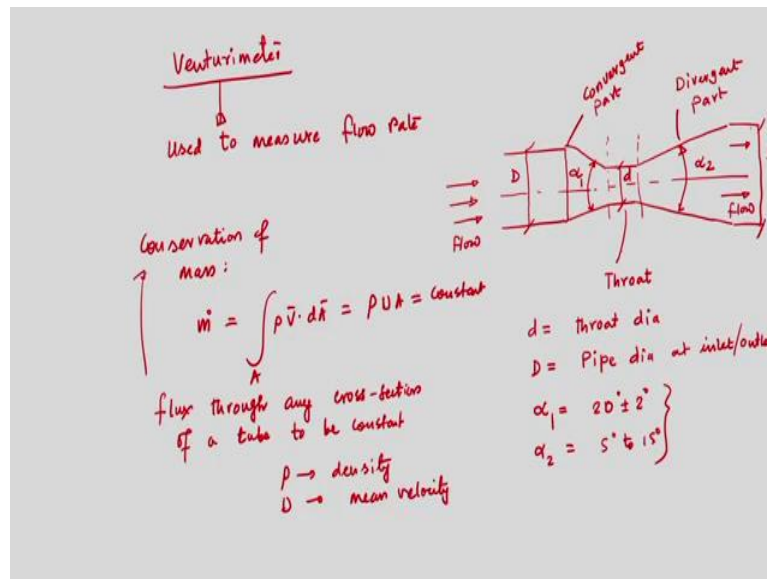 Venturimeter
Used to measure flow rate
Conservation of
mass:
ṁ = ∫ ρ V̄ · dĀ = ρ U A = constant
A
flux through any cross-section
of a tube to be constant
ρ → density
U → mean velocity
Convergent
part
Divergent
part
D
α₁
d
α₂
flow
flow
Throat
d = throat dia
D = Pipe dia at inlet/outle
α₁ = 20° ± 2°
α₂ = 5° to 15°